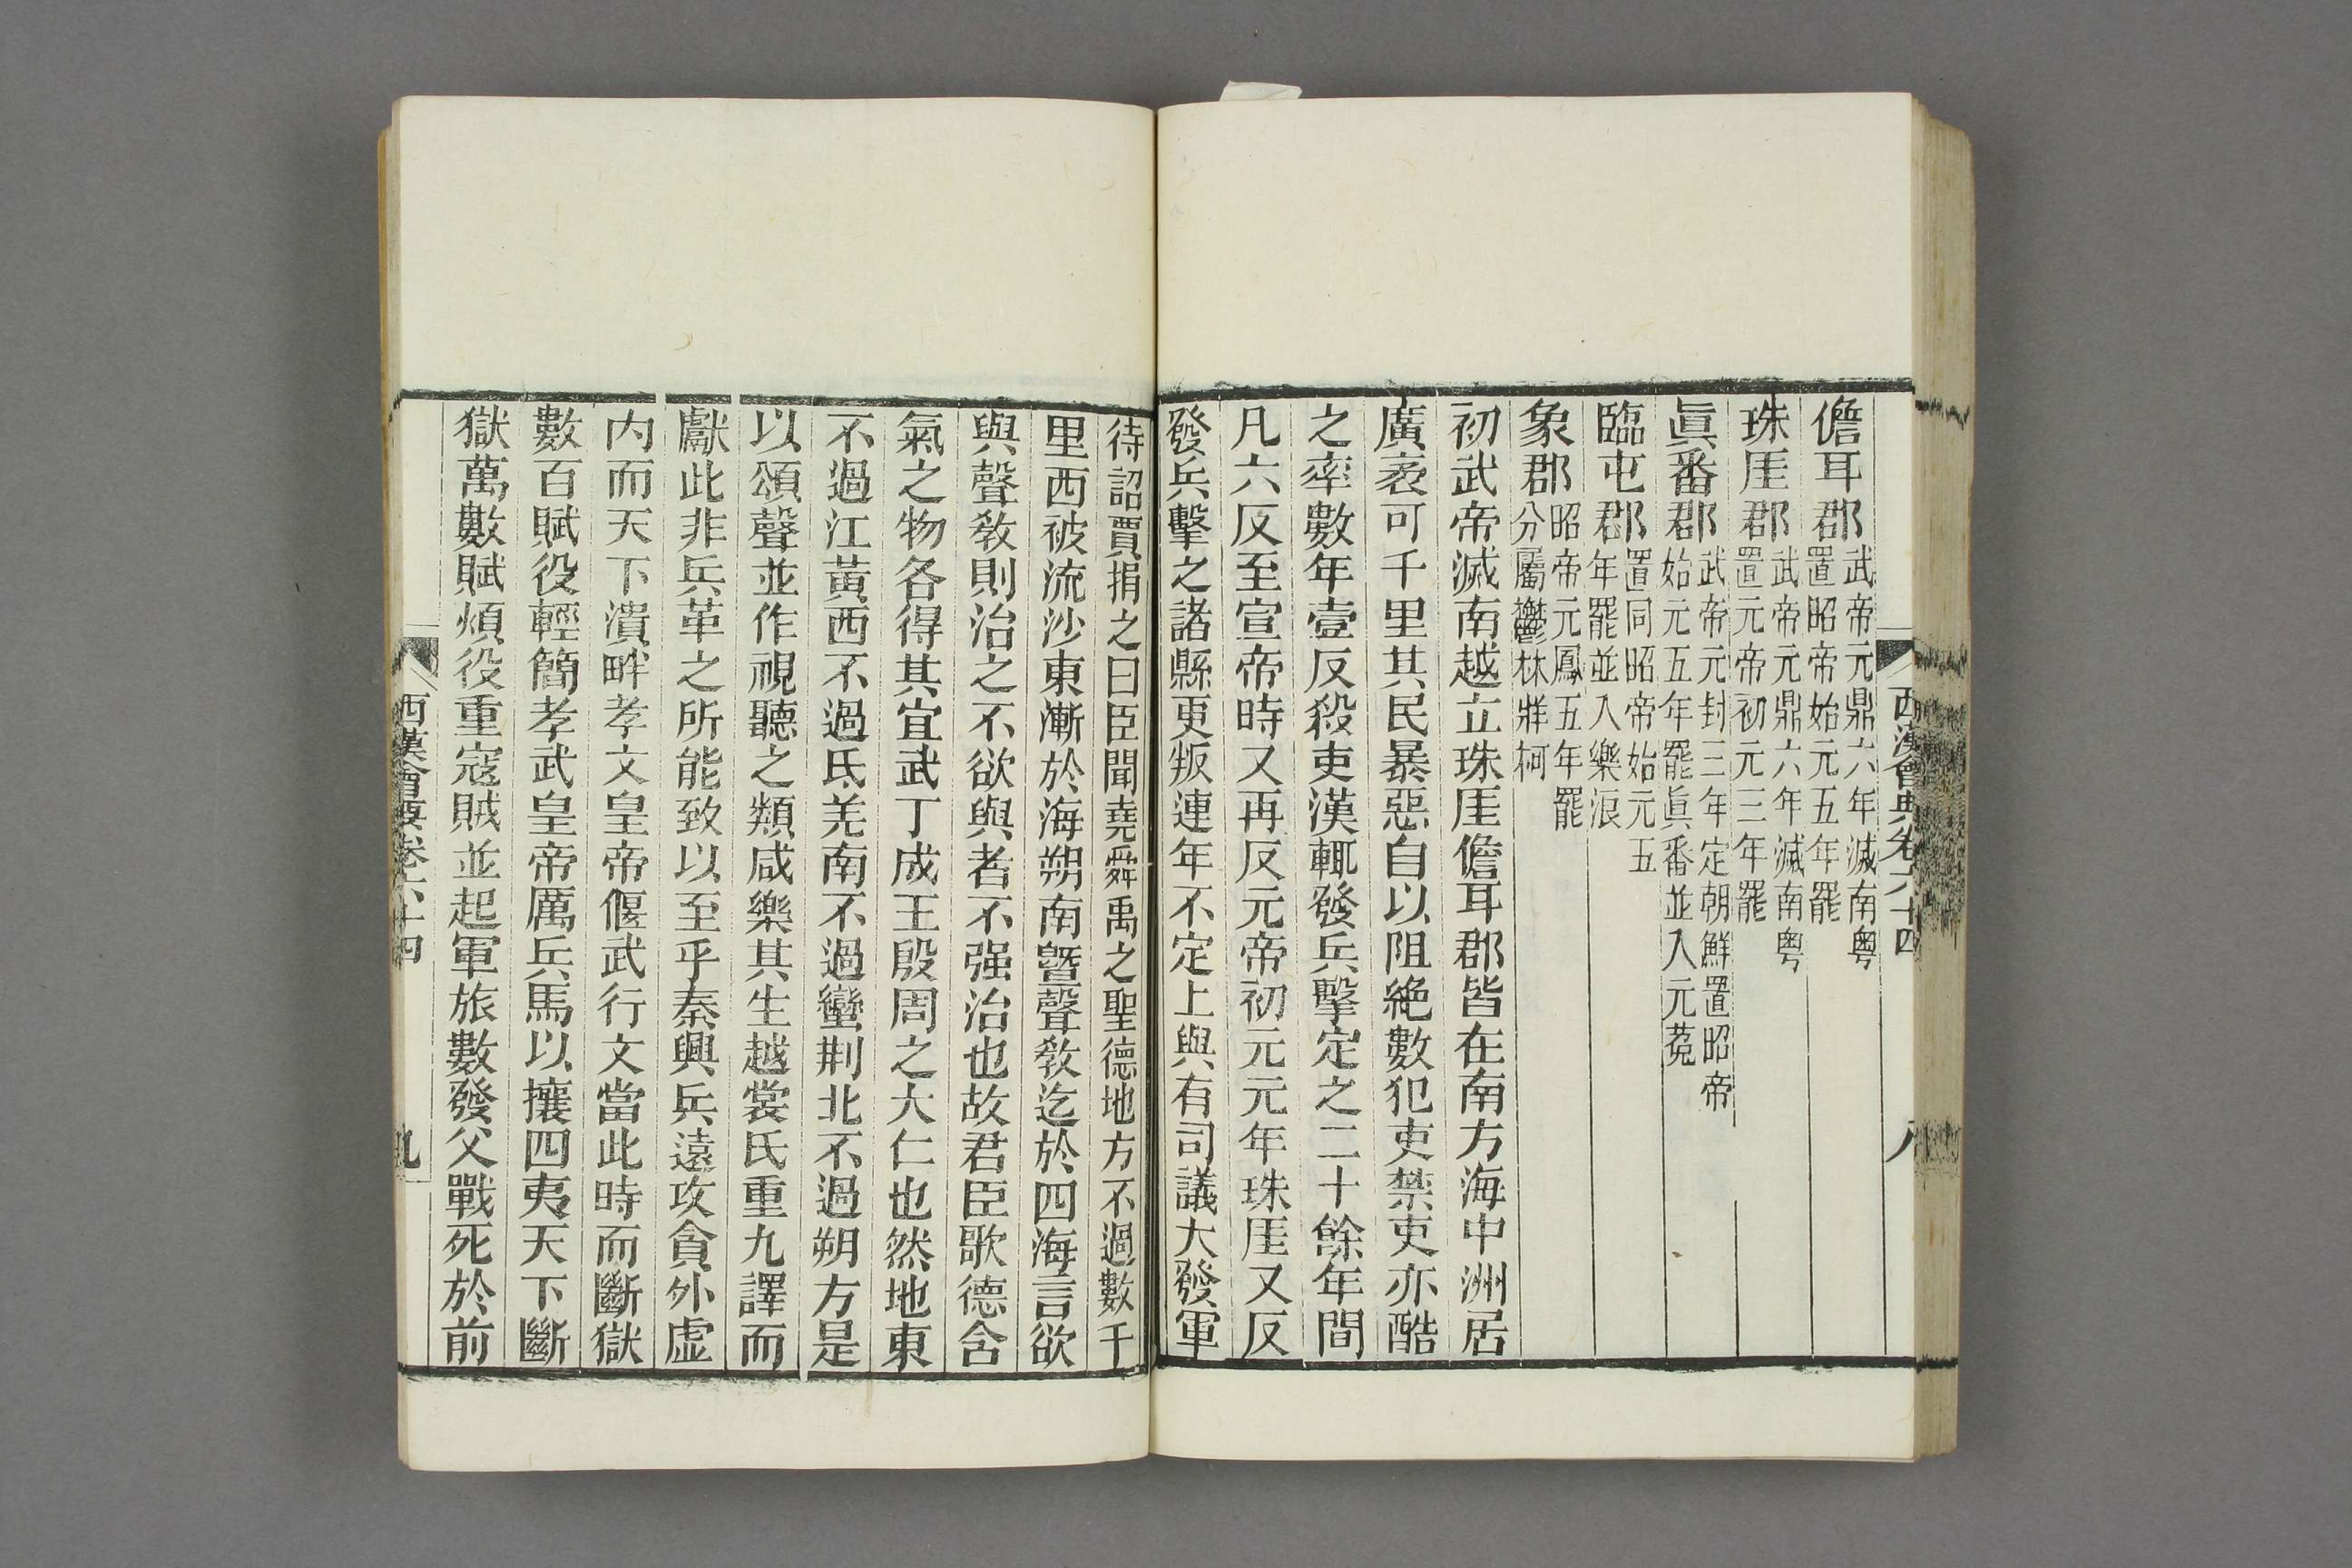 西漢會要卷六十四
八
儋耳郡武帝元鼎六年滅南粤
置昭帝始元五年罷
珠厓郡武帝元鼎六年滅南粤
置元帝初元三年罷
眞番郡武帝元封三年定朝鮮置昭帝
始元五年罷眞番並入元菟
臨屯郡置同昭帝始元五
年罷並入樂浪
象郡昭帝元鳳五年罷
分屬鬱林牂柯
初武帝滅南越立珠厓儋耳郡皆在南方海中洲居
廣袤可千里其民暴惡自以阻絶數犯吏禁吏亦酷
之率數年壹反殺吏漢輒發兵擊定之二十餘年間
凡六反至宣帝時又再反元帝初元元年珠厓又反
發兵擊之諸縣更叛連年不定上與有司議大發軍
待詔賈捐之曰臣聞堯舜禹之聖德地方不過數千
里西被流沙東漸於海朔南曁聲敎迄於四海言欲
與聲敎則治之不欲與者不强治也故君臣歌德含
氣之物各得其宜武丁成王殷周之大仁也然地東
不過江黃西不過氐羌南不過蠻荆北不過朔方是
以頌聲並作視聽之類咸樂其生越裳氏重九譯而
獻此非兵革之所能致以至乎秦興兵遠攻貪外虛
内而天下潰畔孝文皇帝偃武行文當此時而斷獄
數百賦役輕簡孝武皇帝厲兵馬以攘四夷天下斷
獄萬數賦煩役重寇賊並起軍旅數發父戰死於前
西漢會要卷六十四
九